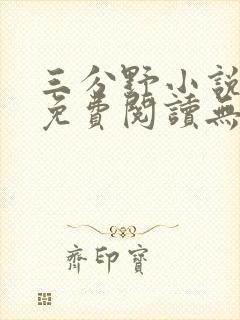 三分野小說
免費閱讀無
齊印寶